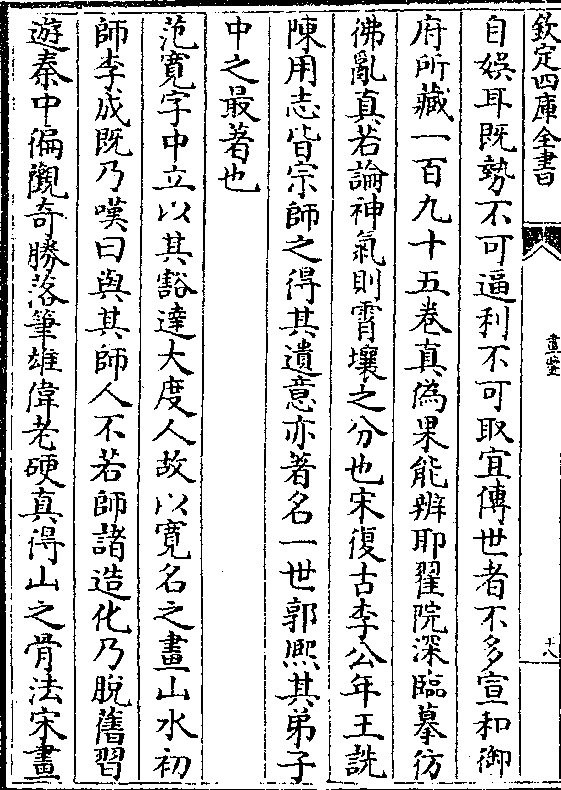 欽定四庫全書
畫鑒
十八
自娯耳既勢不可逼利不可取宜傳世者不多宣和御
府所藏一百九十五卷真偽果能辨耶翟院深臨摹彷
彿亂真若論神氣則霄壤之分也宋復古李公年王詵
陳用志皆宗師之得其遺意亦著名一世郭熙其弟子
中之最著也
范寛字中立以其豁達大度人故以寛名之畫山水初
師李成既乃嘆曰與其師人不若師諸造化乃脱舊習
遊秦中徧觀奇勝落筆雄偉老硬真得山之骨法宋畫